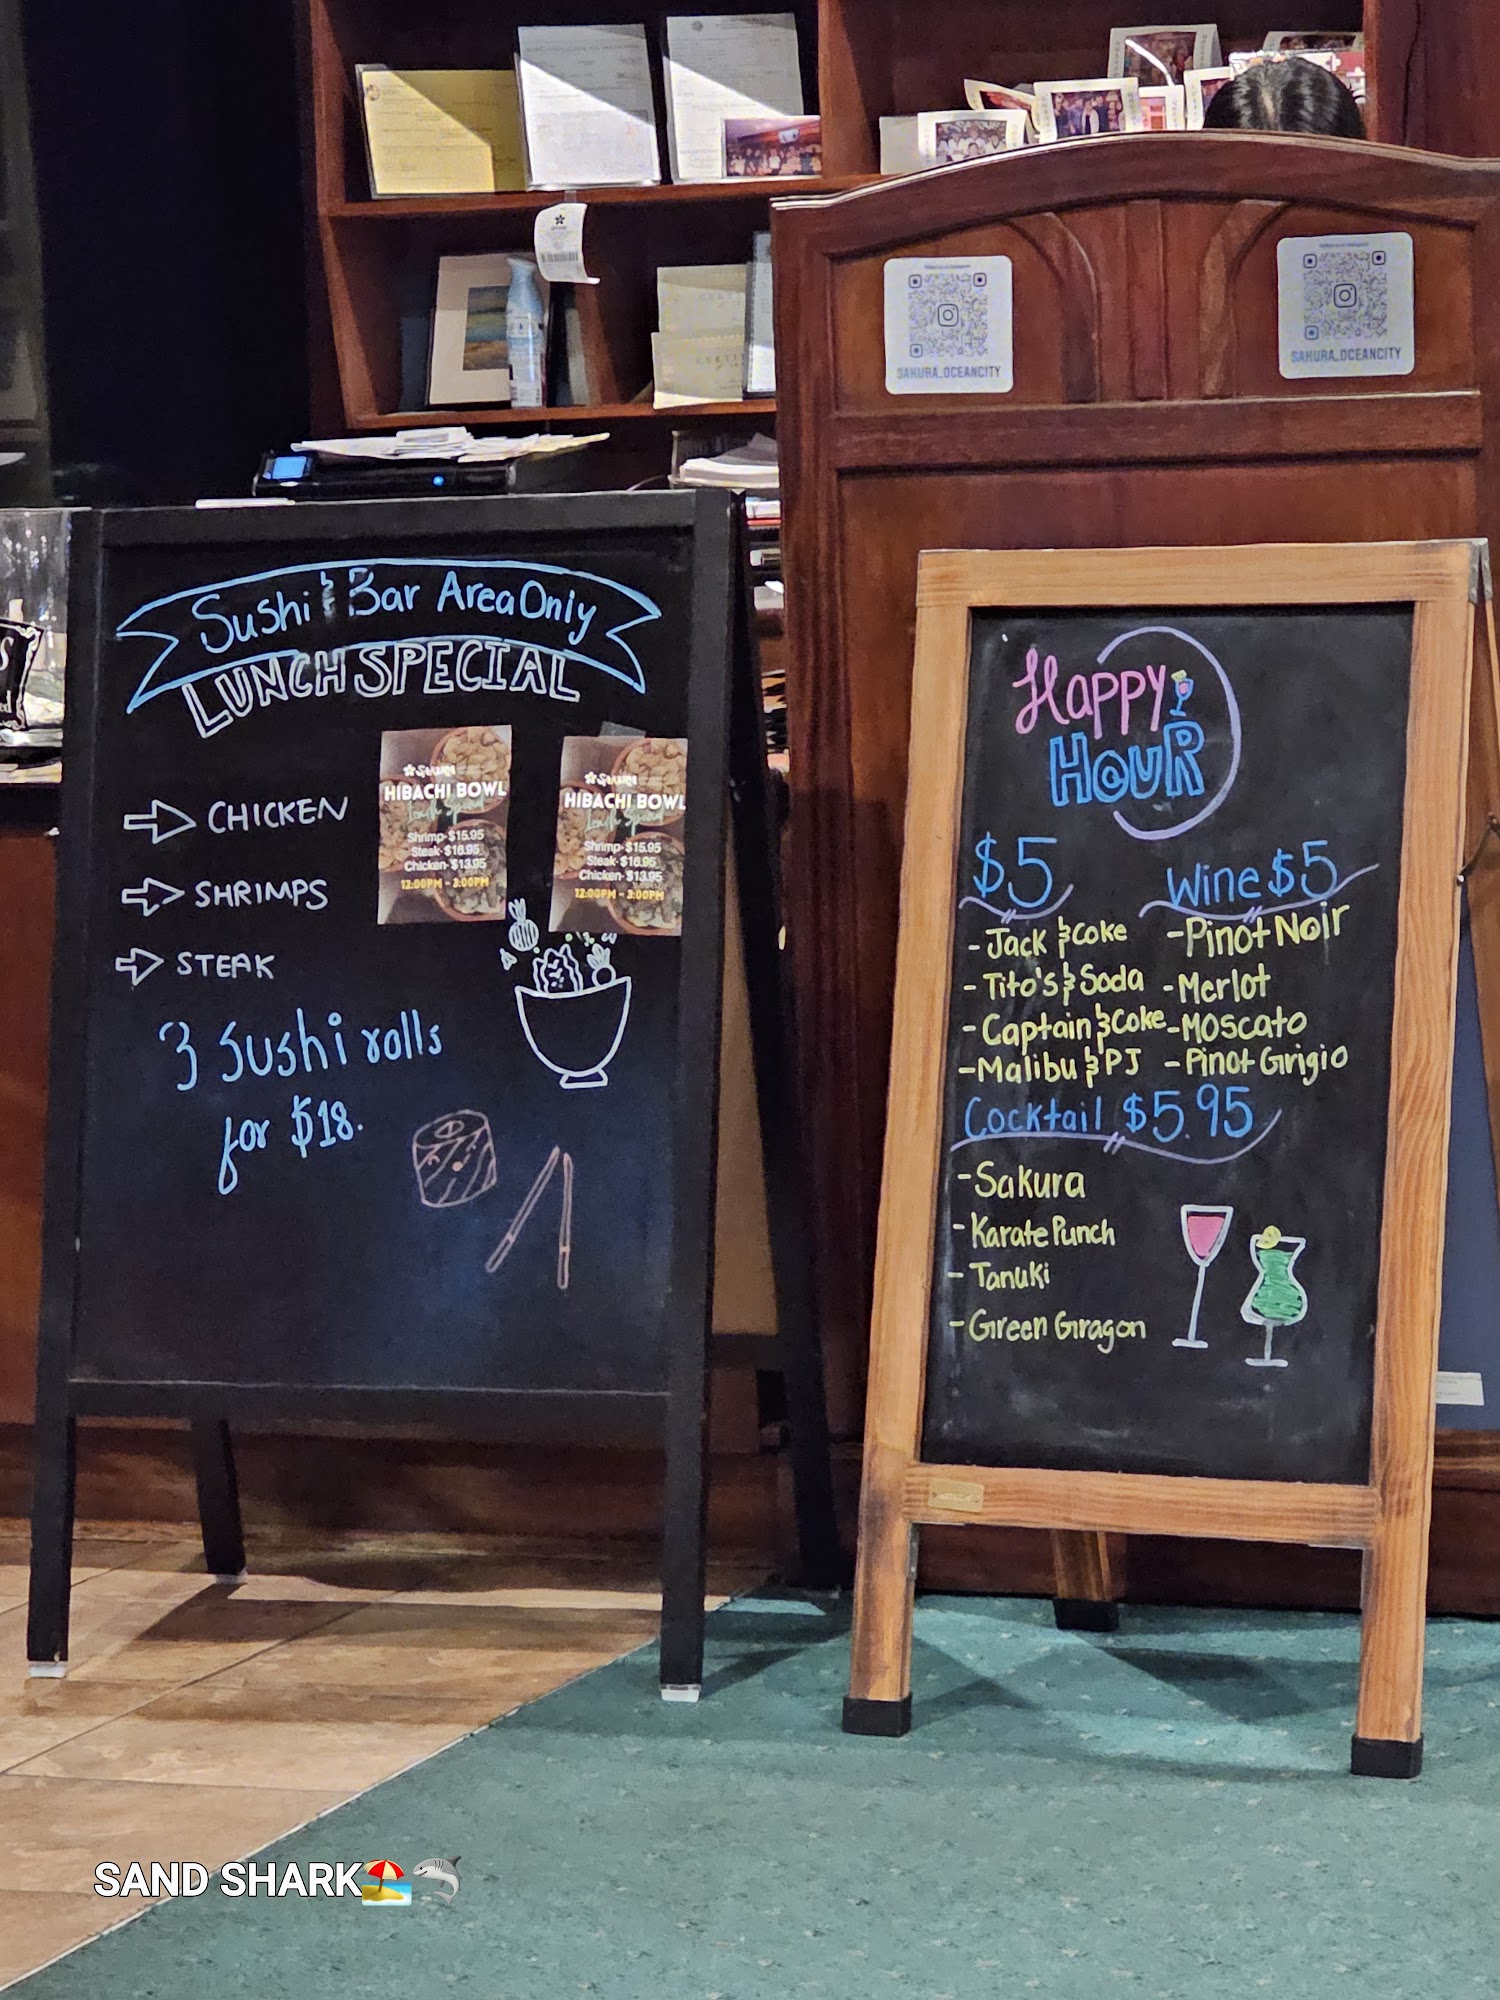 SAKURA_OCEANCITY
SAKURA_OCEANCITY
Sushi & Bar Area Only
LUNCH SPECIAL
CHICKEN
SHRIMPS
STEAK
3 Sushi rolls
for $18.
Sakura
HIBACHI BOWL
Lunch Special
Shrimp-$15.95
Steak-$16.95
Chicken-$13.95
12:00PM - 3:00PM
Sakura
HIBACHI BOWL
Lunch Special
Shrimp-$15.95
Steak-$16.95
Chicken-$13.95
12:00PM - 3:00PM
Happy
HOUR
$5
- Jack & Coke
- Tito's & Soda
- Captain & Coke
- Malibu & PJ
Wine $5
- Pinot Noir
- Merlot
- Moscato
- Pinot Grigio
Cocktail $5.95
- Sakura
- Karate Punch
- Tanuki
- Green Gragon
SAND SHARK🏖️🦈